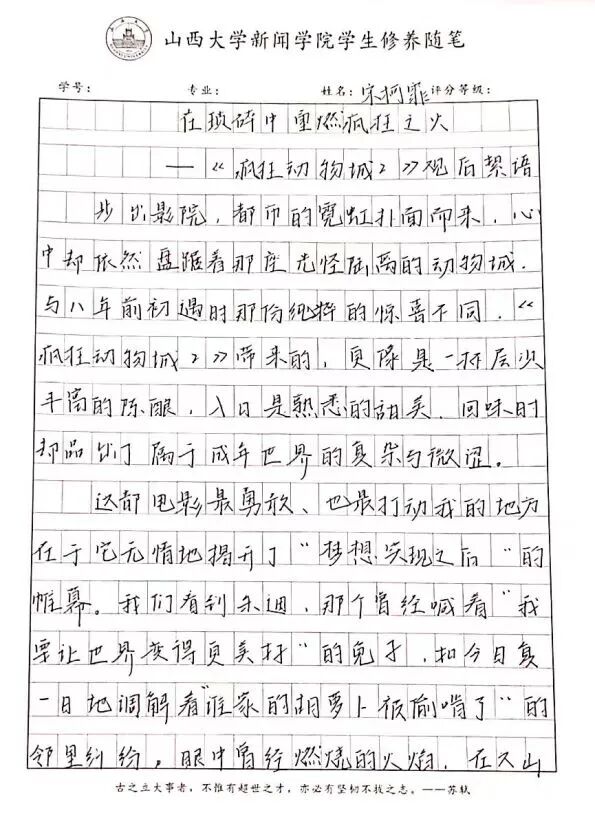 山西大学新闻学院学生修养随笔
学号： 专业： 姓名：宋柯霏 评分等级：
在琐碎中重燃疯狂之火
——《疯狂动物城2》观后絮语
步出影院，都市的霓虹扑面而来，心
中却依然盘踞着那座光怪陆离的动物城．
与八年前初遇时那份纯粹的惊喜不同，《
疯狂动物城2》带来的，更像是一杯层次
丰富的陈酿，入口是熟悉的甜美，回味时
却品出了属于成年世界的复杂与微涩。
这部电影最勇敢、也最打动我的地方
在于它无情地揭开了“梦想实现之后”的
帷幕。我们看到朱迪，那个曾经喊着“我
要让世界变得更美好”的兔子，如今日复
一日地调解着“谁家的胡萝卜被偷啃了”的
邻里纠纷，眼中曾经燃烧的火焰，在文山
古之立大事者，不惟有超世之才，亦必有坚韧不拔之志。——苏轼